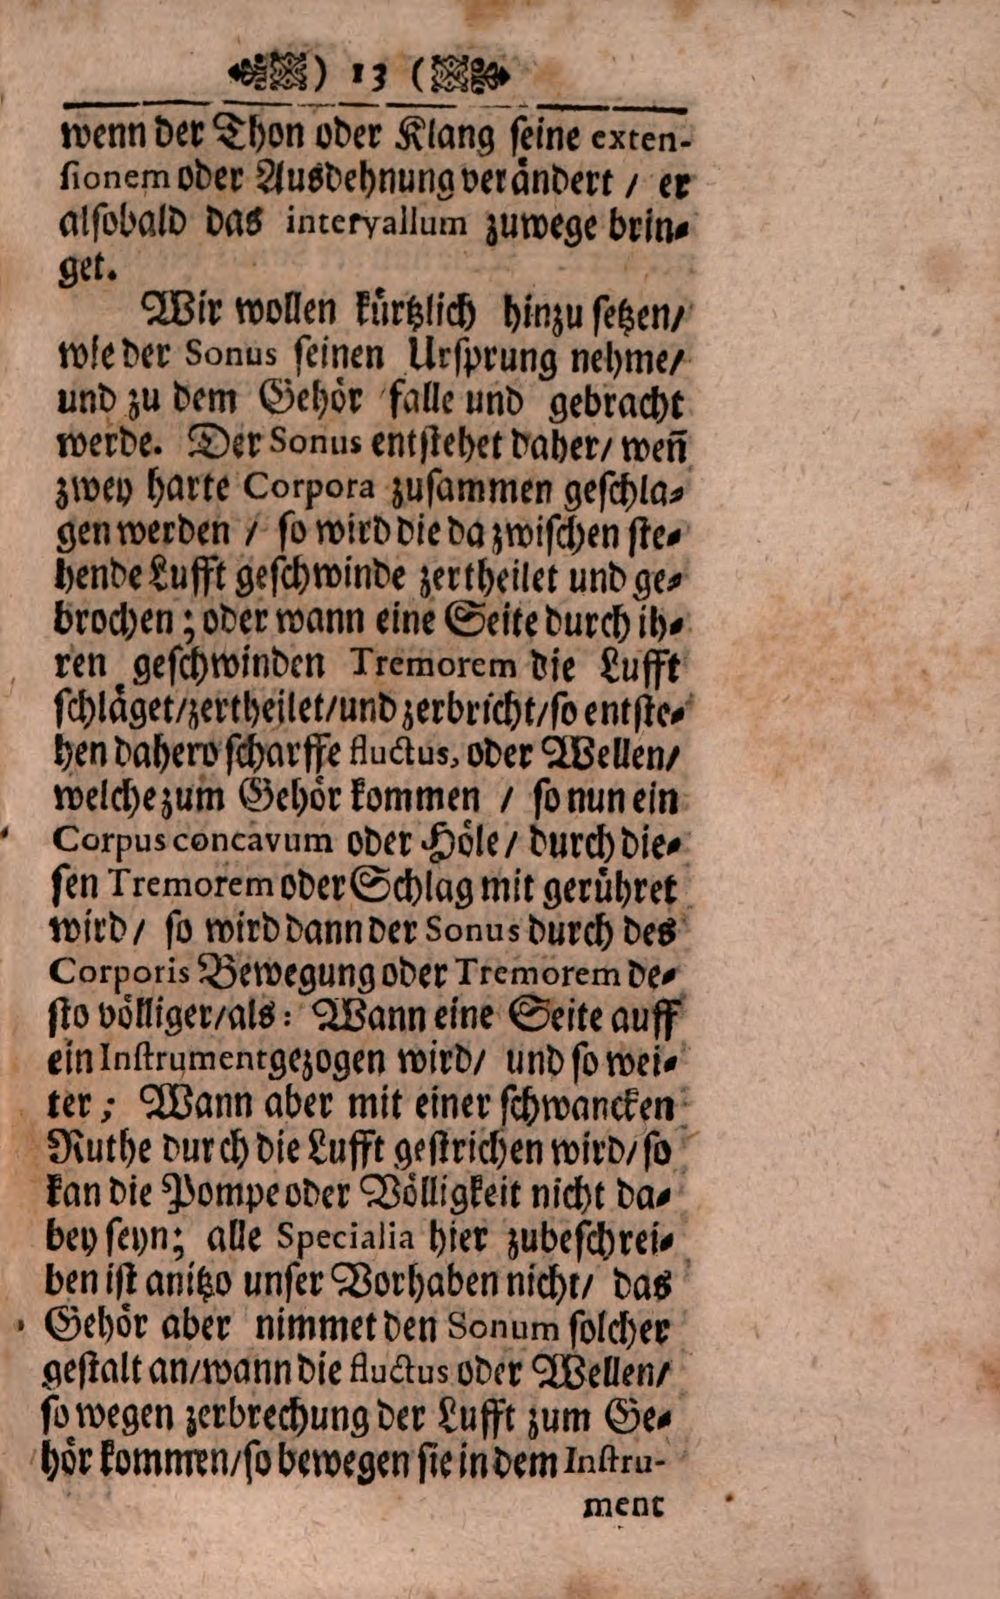 ) 13 (
wenn der Thon oder Klang ſeine exten-
ſionem oder Ausdehnung verändert / er
alſobald das intervallum zuwege brin-
get.
Wir wollen kürtzlich hinzu ſetzen/
wie der Sonus ſeinen Urſprung nehme/
und zu dem Gehör falle und gebracht
werde. Der Sonus entſtehet daher/ weñ
zwey harte Corpora zuſammen geſchla-
gen werden / ſo wird die da zwiſchen ſte-
hende Lufft geſchwinde zertheilet und ge-
brochen ; oder wann eine Seite durch ih-
ren geſchwinden Tremorem die Lufft
ſchläget/zertheilet/und zerbricht/ſo entſte-
hen dahero ſcharffe fluctus, oder Wellen/
welche zum Gehör kommen / ſo nun ein
Corpus concavum oder Höle / durch die-
ſen Tremorem oder Schlag mit gerühret
wird/ ſo wird dann der Sonus durch des
Corporis Bewegung oder Tremorem de-
ſto völliger/als: Wann eine Seite auff
ein Inſtrument gezogen wird/ und ſo wei-
ter ; Wann aber mit einer ſchwancken
Ruthe durch die Lufft geſtrichen wird/ſo
kan die Pompe oder Völligkeit nicht da-
bey ſeyn; alle Specialia hier zubeſchrei-
ben iſt anitzo unſer Vorhaben nicht/ das
Gehör aber nimmet den Sonum ſolcher
geſtalt an/wann die fluctus oder Wellen/
ſo wegen zerbrechung der Lufft zum Ge-
hör kommen/ſo bewegen ſie in dem Inſtru-
ment